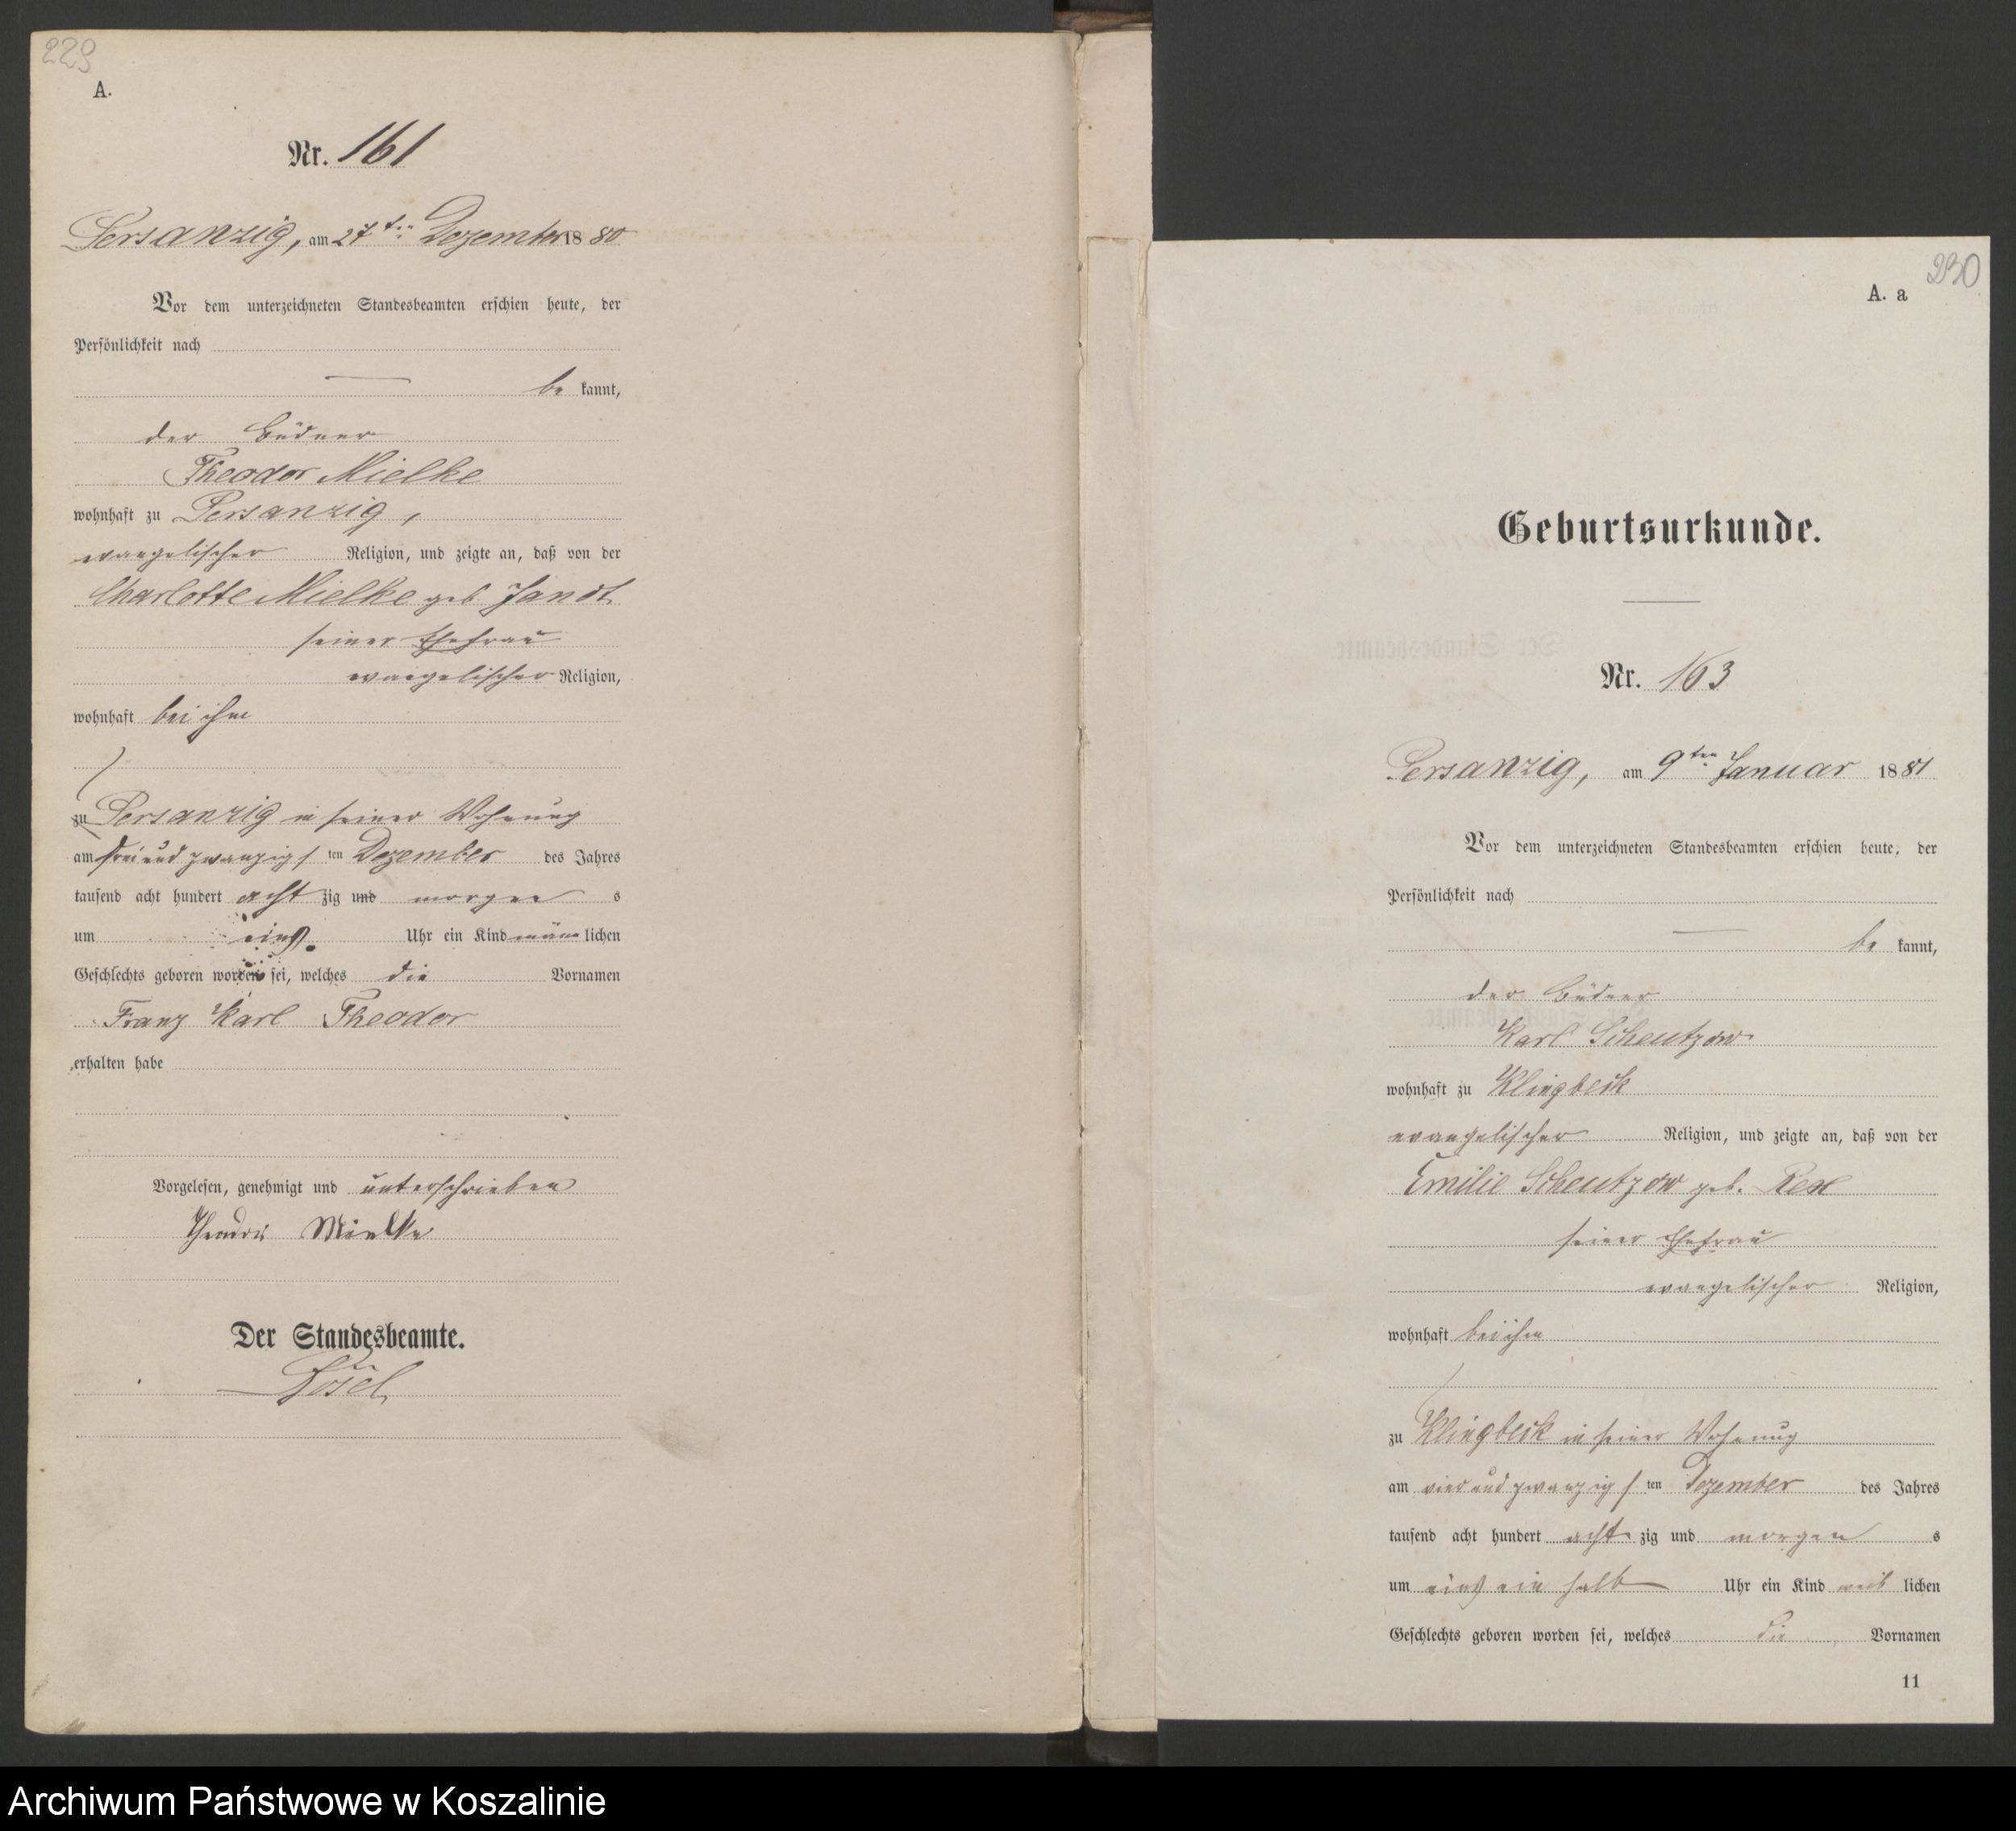 229
A.
Nr. 161
Persanzig, am 27ten Dezember 1880
Vor dem unterzeichneten Standesbeamten erschien heute, der
Persönlichkeit nach
be kannt,
der Büdner
Theodor Mielke
wohnhaft zu Persanzig,
evangelischer Religion, und zeigte an, daß von der
Charlotte Mielke geb. Jandt
seiner Ehefrau
evangelischer Religion,
wohnhaft bei ihm
zu Persanzig in seiner Wohnung
am dreiundzwanzigsten Dezember des Jahres
tausend acht hundert achtzig und morgens
um eins Uhr ein Kind männlichen
Geschlechts geboren worden sei, welches die Vornamen
Franz Karl Theodor
erhalten habe
Vorgelesen, genehmigt und unterschrieben
Theodor Mielke
Der Standesbeamte.
230
A. a
Geburtsurkunde.
Nr. 163
Persanzig, am 9ten Januar 1881
Vor dem unterzeichneten Standesbeamten erschien heute, der
Persönlichkeit nach
be kannt,
der Büdner
Karl Scheutzow
wohnhaft zu Klingbeck
evangelischer Religion, und zeigte an, daß von der
Emilie Scheutzow geb. Rex
seiner Ehefrau
evangelischer Religion,
wohnhaft bei ihm
zu Klingbeck in seiner Wohnung
am vierundzwanzigsten Dezember des Jahres
tausend acht hundert achtzig und morgens
um eins ein halb Uhr ein Kind weiblichen
Geschlechts geboren worden sei, welches die Vornamen
11
Archiwum Państwowe w Koszalinie